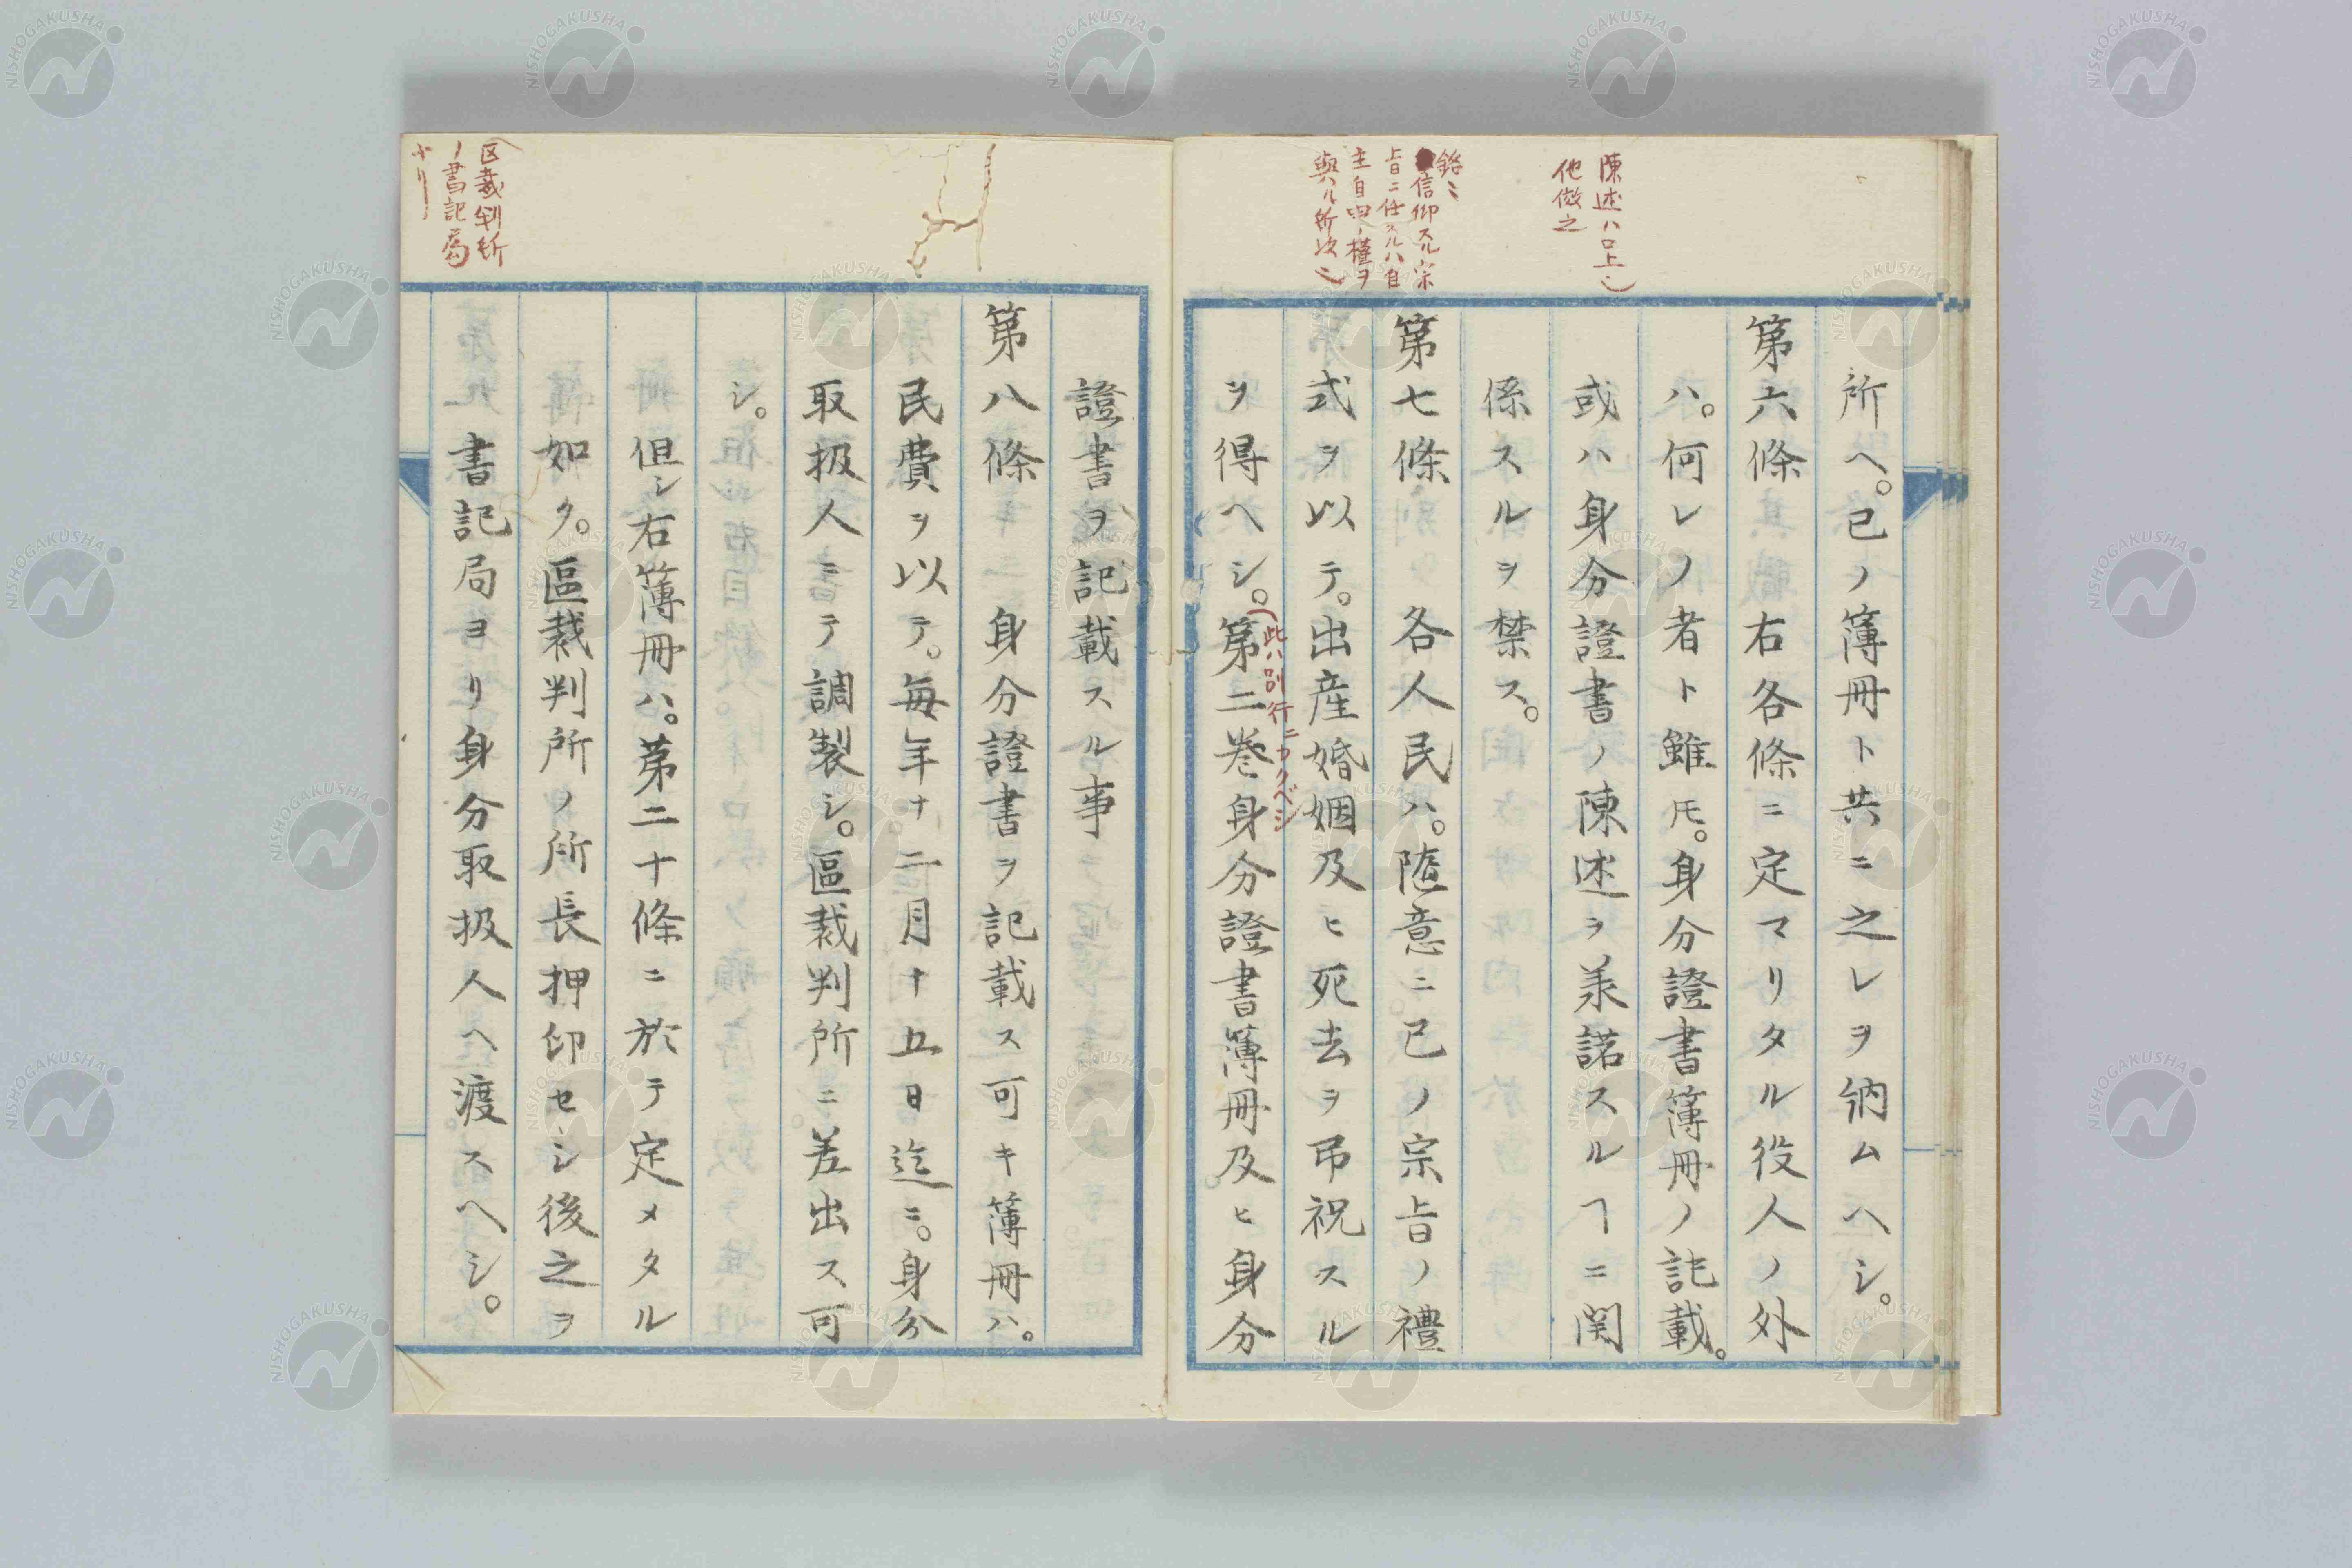 陳述ハ口上ニ
他傚之
信仰スル宗
旨ニ任スルハ自
主自由ノ権ヲ
與ル所以ニ
所ヘ。己ノ簿冊ト共ニ之レヲ納ムヘシ。
第六條 右各條ニ定マリタル役人ノ外
ハ。何レノ者ト雖𪜈。身分證書簿冊ノ記載。
或ハ身分證書ノ陳述ヲ承諾スルヿニ関
係スルヲ禁ス。
第七條 各人民ハ。随意ニ己ノ宗旨ノ禮
式ヲ以テ。出産婚姻及ヒ死去ヲ弔祝スル
ヲ得ヘシ。第二巻身分證書簿冊及ヒ身分
此ハ別行ニカクベシ
證書ヲ記載スル事
第八條 身分證書ヲ記載ス可キ簿冊ハ。
民費ヲ以テ。毎年十二月十五日迄ニ。身分
取扱人ニテ調製シ。區裁判所ニ差出ス可
シ。
但シ右簿冊ハ。第二十條ニ於テ定メタル
如ク。區裁判所ノ所長押印セシ後之ヲ
書記局ヨリ身分取扱人ヘ渡スヘシ。
区裁判所
ノ書記局
ヨリ
NISHOGAKUSHA